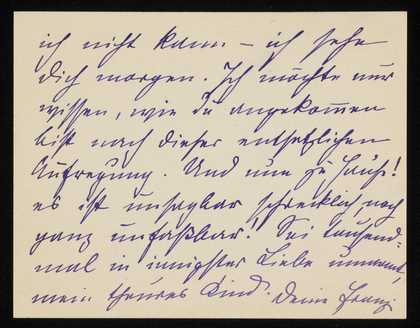 ich nicht kam. – ich sehe
dich morgen. Ich möchte nur
wissen, wie du angekommen
bist nach dieser entsetzlichen
Aufregung. Und nun zu Hause!
es ist unsagbar schrecklich, noch
ganz unfaßbar! Sei tausend-
mal in innigster Liebe umarmt,
mein theures Kind. Deine